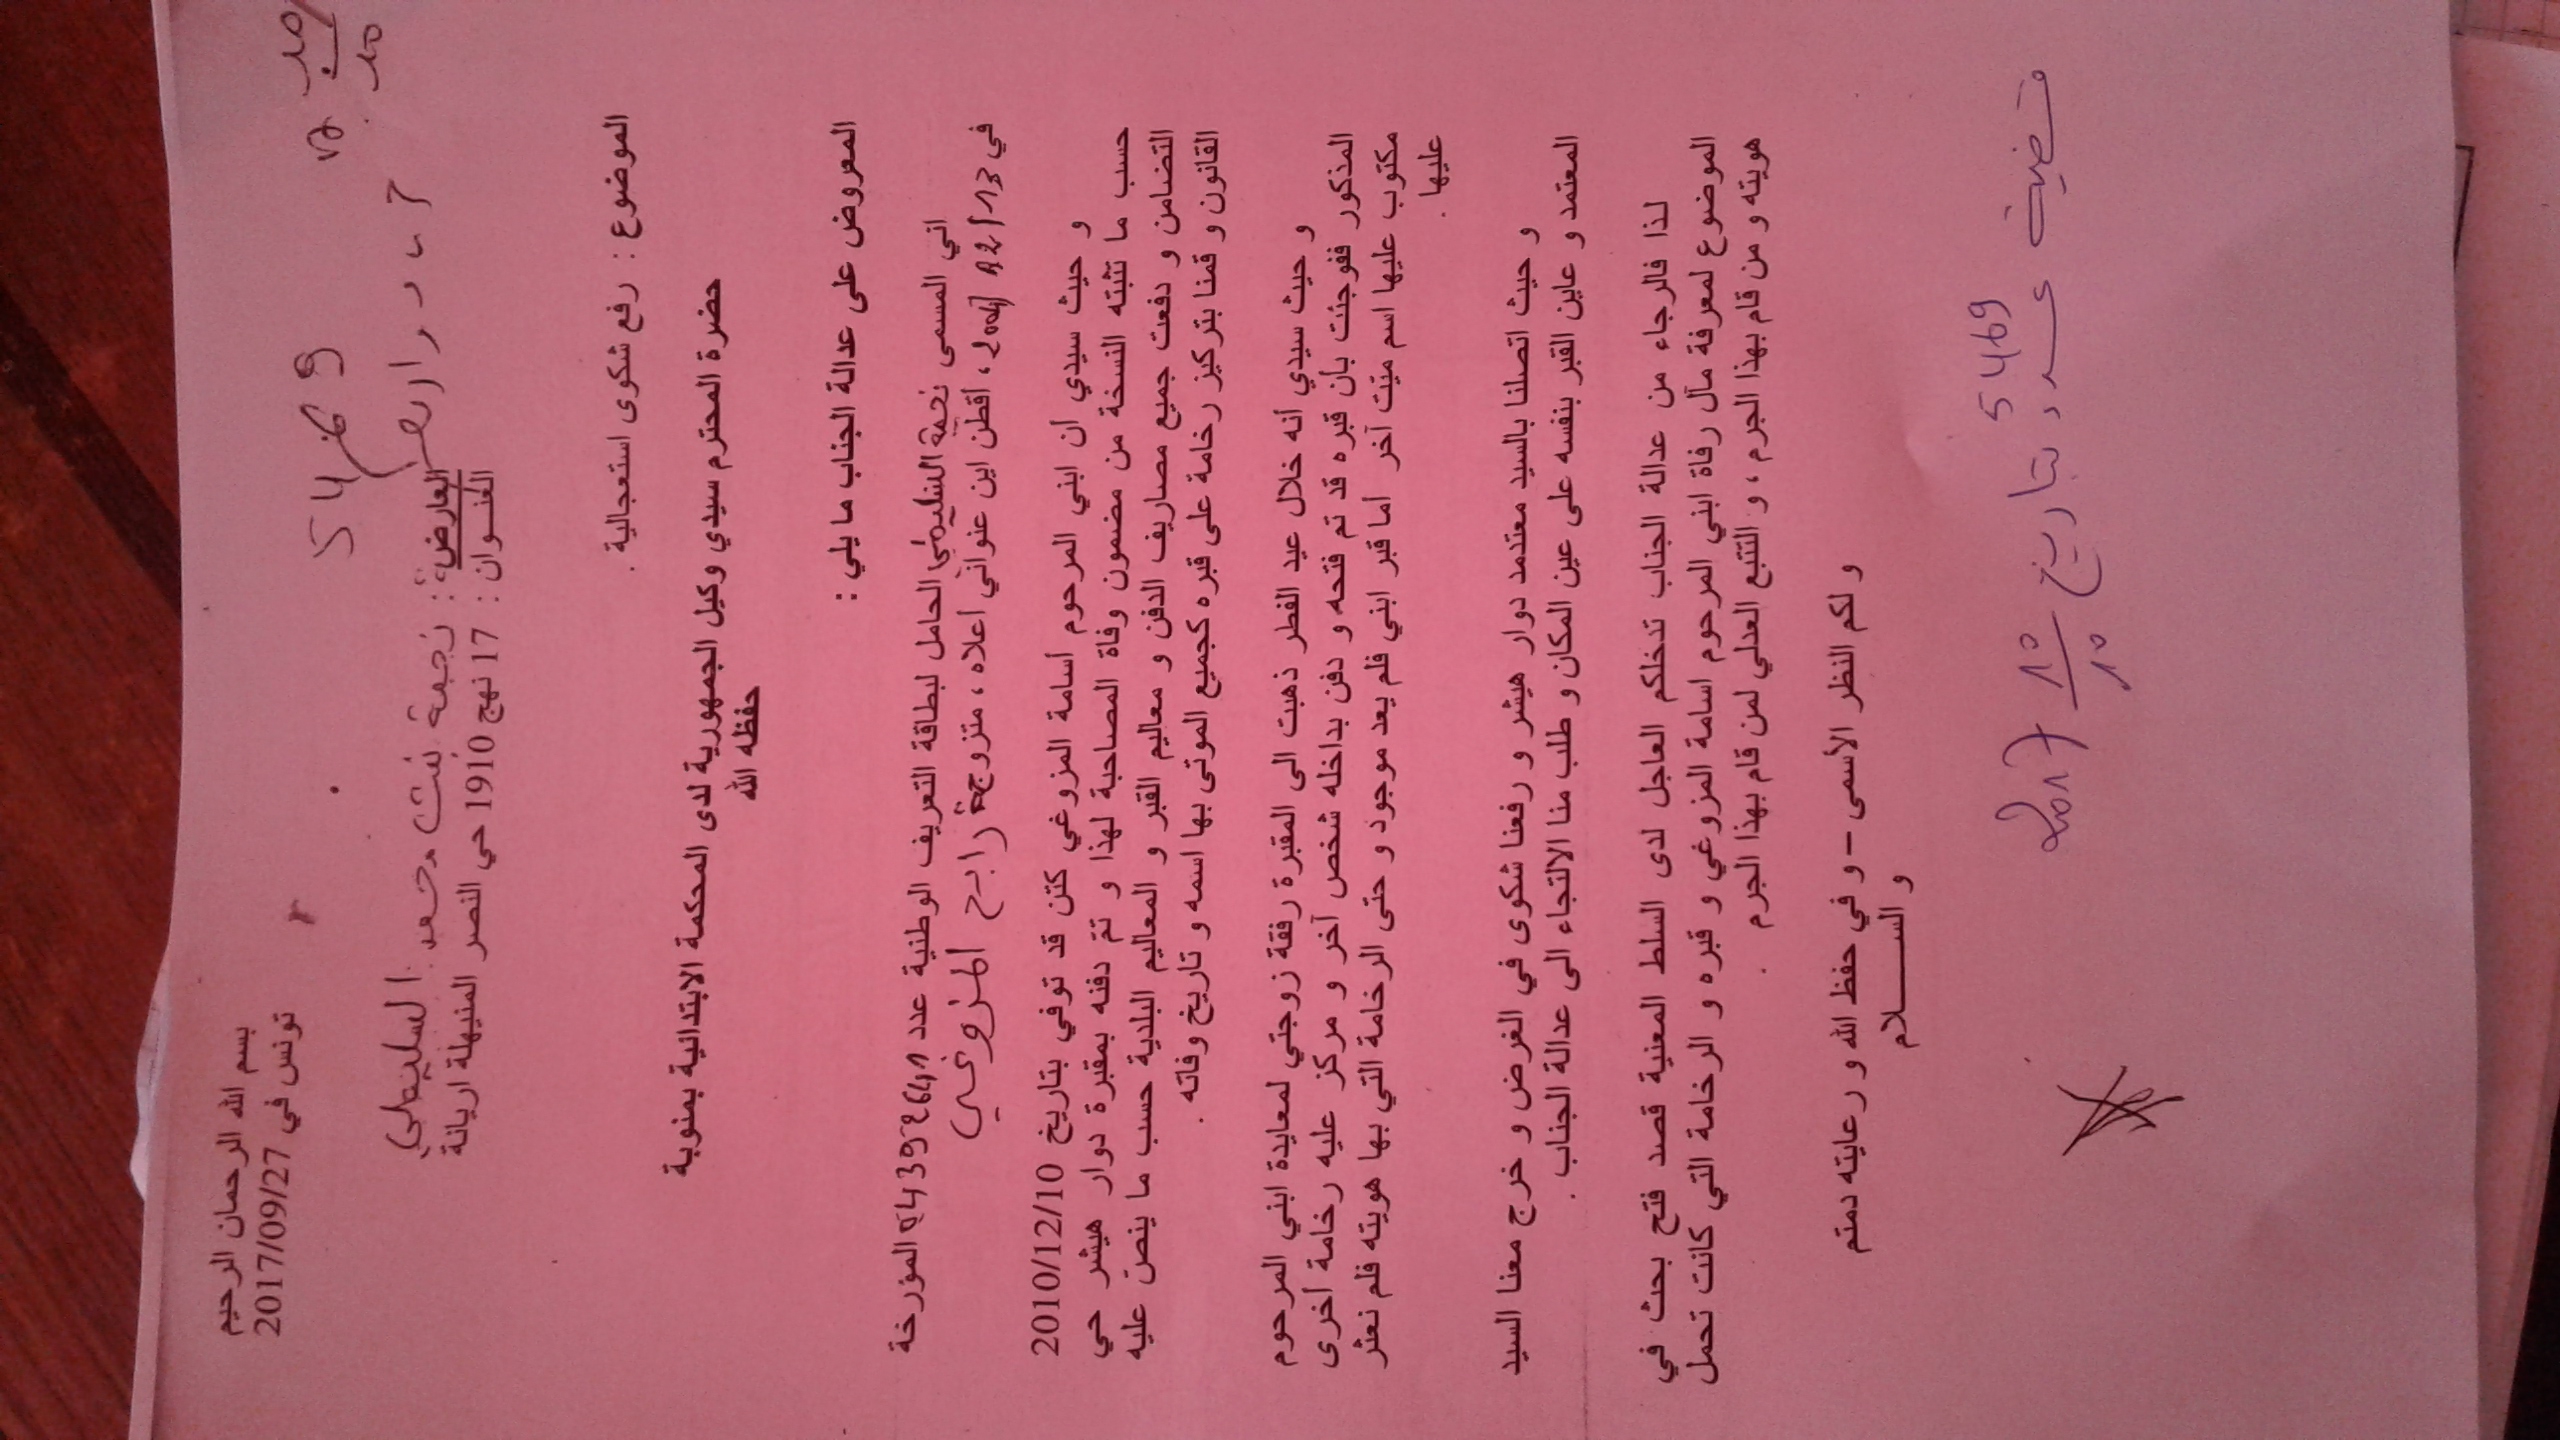 بسم الله الرحمان الرحيم
تونس في 2017/09/27
5469
العارضة : نجمة بنت محمد السليمي
العنـــوان : 17 نهج 1910 حي النصر المنيهلة اريانة
الموضوع : رفع شكوى استعجالية .
حضرة المحترم سيدي وكيل الجمهورية لدى المحكمة الابتدائية بمنوبة
حفظه الله
المعروض على عدالة الجناب ما يلي :
اني المسمى نجمة السليمي الحامل لبطاقة التعريف الوطنية عدد المؤرخة
في ، أقطن اين عنواني اعلاه ، متزوجة رابح المزوغي
و حيث سيدي ان ابني المرحوم أسامة المزوغي كتن قد توفي بتاريخ 2010/12/10
حسب ما تثبته النسخة من مضمون وفاة المصاحبة لهذا و تمّ دفنه بمقبرة دوار هيشر حي
التضامن و دفعت جميع مصاريف الدفن و معاليم القبر و المعاليم البلدية حسب ما ينصّ عليه
القانون و قمنا بتركيز رخامة على قبره كجميع الموتى بها اسمه و تاريخ وفاته .
و حيث سيدي أنه خلال عيد الفطر ذهبت الى المقبرة رفقة زوجتي لمعايدة ابني المرحوم
المذكور ففوجئت بأن قبره قد تم فتحه و دفن بداخله شخص آخر و مركز عليه رخامة أخرى
مكتوب عليها اسم ميّت آخر اما قبر ابني فلم يعد موجود و حتى الرخامة التي بها هويته فلم نعثر
عليها .
و حيث اتصلنا بالسيد معتدمد دوار هيشر و رفعنا شكوى في الغرض و خرج معنا السيد
المعتمد و عاين القبر بنفسه على عين المكان و طلب منا الالتجاء الى عدالة الجناب .
لذا فالرجاء من عدالة الجناب تدخلكم العاجل لدى السلط المعنية قصد فتح بحث في
الموضوع لمعرفة مآل رفاة ابني المرحوم اسامة المزوغي و قبره و الرخامة التي كانت تحمل
هويته و من قام بهذا الجرم ، و التتبع العدلي لمن قام بهذا الجرم .
و لكم النظر الأسمى – و في حفظ الله و رعايته دمتم
و الســــــلام
قضية عـــدد 5469 بتاريخ 10/10 2017